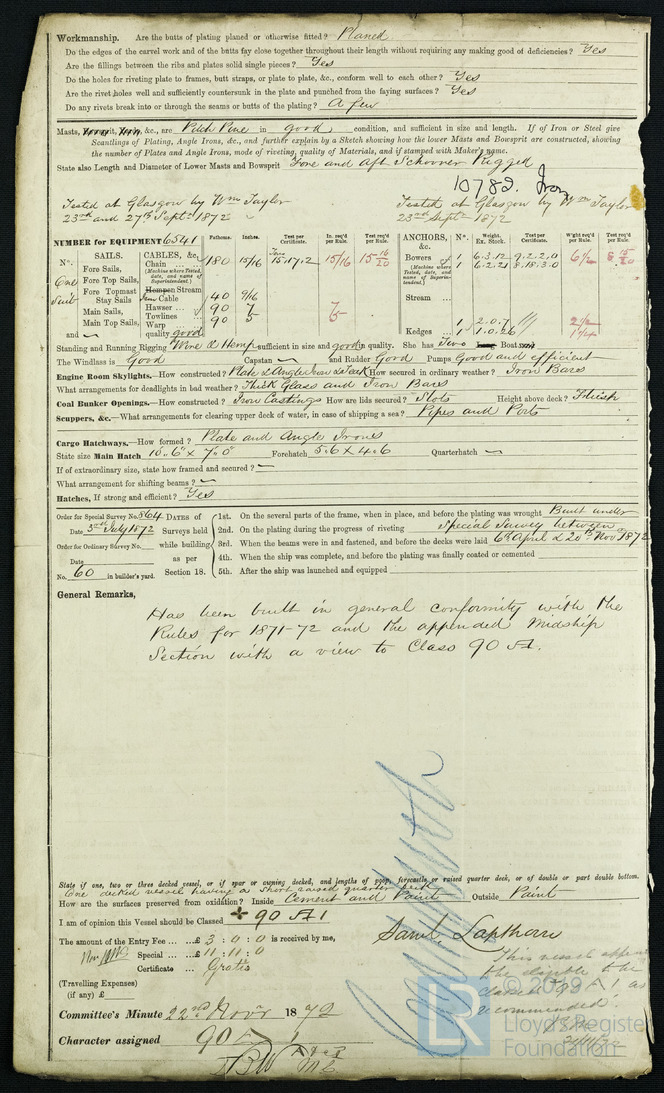 Workmanship. Are the butts of plating planed or otherwise fitted? Planed
Do the edges of the carvel work and of the butts fay close together throughout their length without requiring any making good of deficiencies? Yes
Are the fillings between the ribs and plates solid single pieces? Yes
Do the holes for riveting plate to frames, butt straps, or plate to plate, &c., conform well to each other? Yes
Are the rivet holes well and sufficiently countersunk in the plate and punched from the faying surfaces? Yes
Do any rivets break into or through the seams or butts of the plating? A few
Masts, &c., are Pitch Pine in good condition, and sufficient in size and length. If of Iron or Steel give
Scantlings of Plating, Angle Irons, &c., and further explain by a Sketch showing how the lower Masts and Bowsprit are constructed, showing
the number of Plates and Angle Irons, mode of riveting, quality of Materials, and if stamped with Maker's name.
State also Length and Diameter of Lower Masts and Bowsprit Fore and Aft Schooner Rigged
10782. Iron
Tested at Glasgow by Wm Taylor
23rd and 27th Septr 1872
Tested at Glasgow by Wm Taylor
23rd Septr 1872
NUMBER for EQUIPMENT 6541
Fathoms. Inches. Test per Certificate. In. req'd per Rule. Test req'd per Rule.
ANCHORS, &c. No. Weight. Ex. Stock. Test per Certificate. W'ght req'd per Rule. Test req'd per Rule.
No. SAILS. CABLES, &c.
One Suit
Fore Sails, Chain 180 15/16 15.17.2 15/16 15 16/20
Fore Top Sails, (Machine where Tested, date, and name of Superintendent.)
Fore Topmast Stay Sails
Stream Cable 40 9/16
Main Sails, Hawser 90 7
Towlines
Main Top Sails, Warp 90 5
and quality good
Bowers 1 6.3.12 9.2.2.0
1 6.2.21 8.18.3.0
(Machine where Tested, date, and name of Superintendent.)
Stream
Kedges 1 2.0.7
1 1.0.26
Standing and Running Rigging Wire & Hemp sufficient in size and good in quality. She has Two Boats
The Windlass is Good Capstan and Rudder Good Pumps Good and efficient
Engine Room Skylights.—How constructed? Plate & Angle Iron & Teak How secured in ordinary weather? Iron Bars
What arrangements for deadlights in bad weather? Thick Glass and Iron Bars
Coal Bunker Openings.—How constructed? Iron Castings How are lids secured? Slots Height above deck? Flush
Scuppers, &c.—What arrangements for clearing upper deck of water, in case of shipping a sea? Pipes and Ports
Cargo Hatchways.—How formed? Plate and Angle Irons
State size Main Hatch Forehatch 5.6 x 4.6 Quarterhatch
If of extraordinary size, state how framed and secured?
What arrangement for shifting beams?
Hatches, If strong and efficient? Yes
Order for Special Survey No. 864
Date 3rd July 1872
Order for Ordinary Survey No.
Date
No. 60 in builder's yard.
DATES of Surveys held while building as per Section 18.
1st. On the several parts of the frame, when in place, and before the plating was wrought Built under
2nd. On the plating during the progress of riveting special survey between
3rd. When the beams were in and fastened, and before the decks were laid 6th April & 20th Novr 1872
4th. When the ship was complete, and before the plating was finally coated or cemented
5th. After the ship was launched and equipped
General Remarks,
Has been built in general conformity with the
Rules for 1871-72 and the appended Midship
Section with a view to Class 90 A.
State if one, two or three decked vessel, or if spar or awning decked, and lengths of poop, forecastle or raised quarter deck, or of double or part double bottom.
One decked vessel having a short raised quarter deck
How are the surfaces preserved from oxidation? Inside Cement and Paint Outside Paint
I am of opinion this Vessel should be Classed 90 A 1
The amount of the Entry Fee ... £ 3 : 0 : 0 is received by me,
Special ... £ 11 : 11 : 0
Certificate ... Gratis
(Travelling Expenses)
(if any) £
Saml. Lapthorn
This vessel appears
to be eligible to be
classed 90 A 1 as
recommended.
Committee's Minute 22nd Novr 1872
Character assigned 90 A 1
© 2019
LR
Lloyd's Register
Foundation